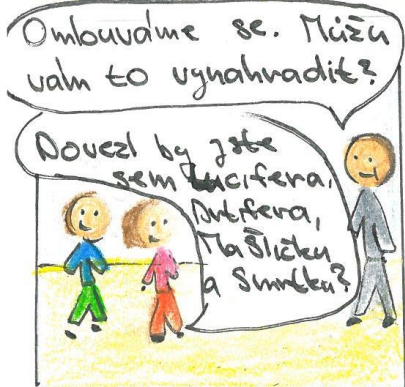 Omlouváme se. Můžu
vám to vynahradit?
Dovezl by jste
sem Lucifera,
Mašličku
a Smrtku?